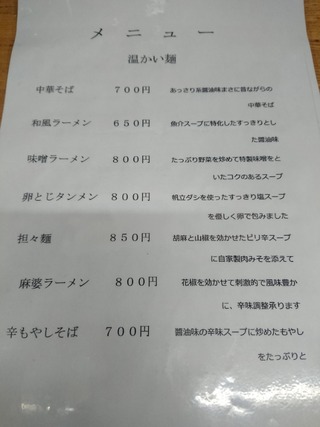 メニュー
温かい麺
中華そば 700円 あっさり系醤油味まさに昔ながらの
中華そば
和風ラーメン 650円 魚介スープに特化したすっきりとし
た醤油味
味噌ラーメン 800円 たっぷり野菜を炒めて特製味噌をと
いたコクのあるスープ
卵とじタンメン 800円 帆立ダシを使ったすっきり塩スープ
を優しく卵で包みました
担々麺 850円 胡麻と山椒を効かせたピリ辛スープ
に自家製肉みそを添えて
麻婆ラーメン 800円 花椒を効かせて刺激的で風味豊か
に、辛味調整承ります
辛もやしそば 700円 醬油味の辛味スープに炒めたもやし
をたっぷりと